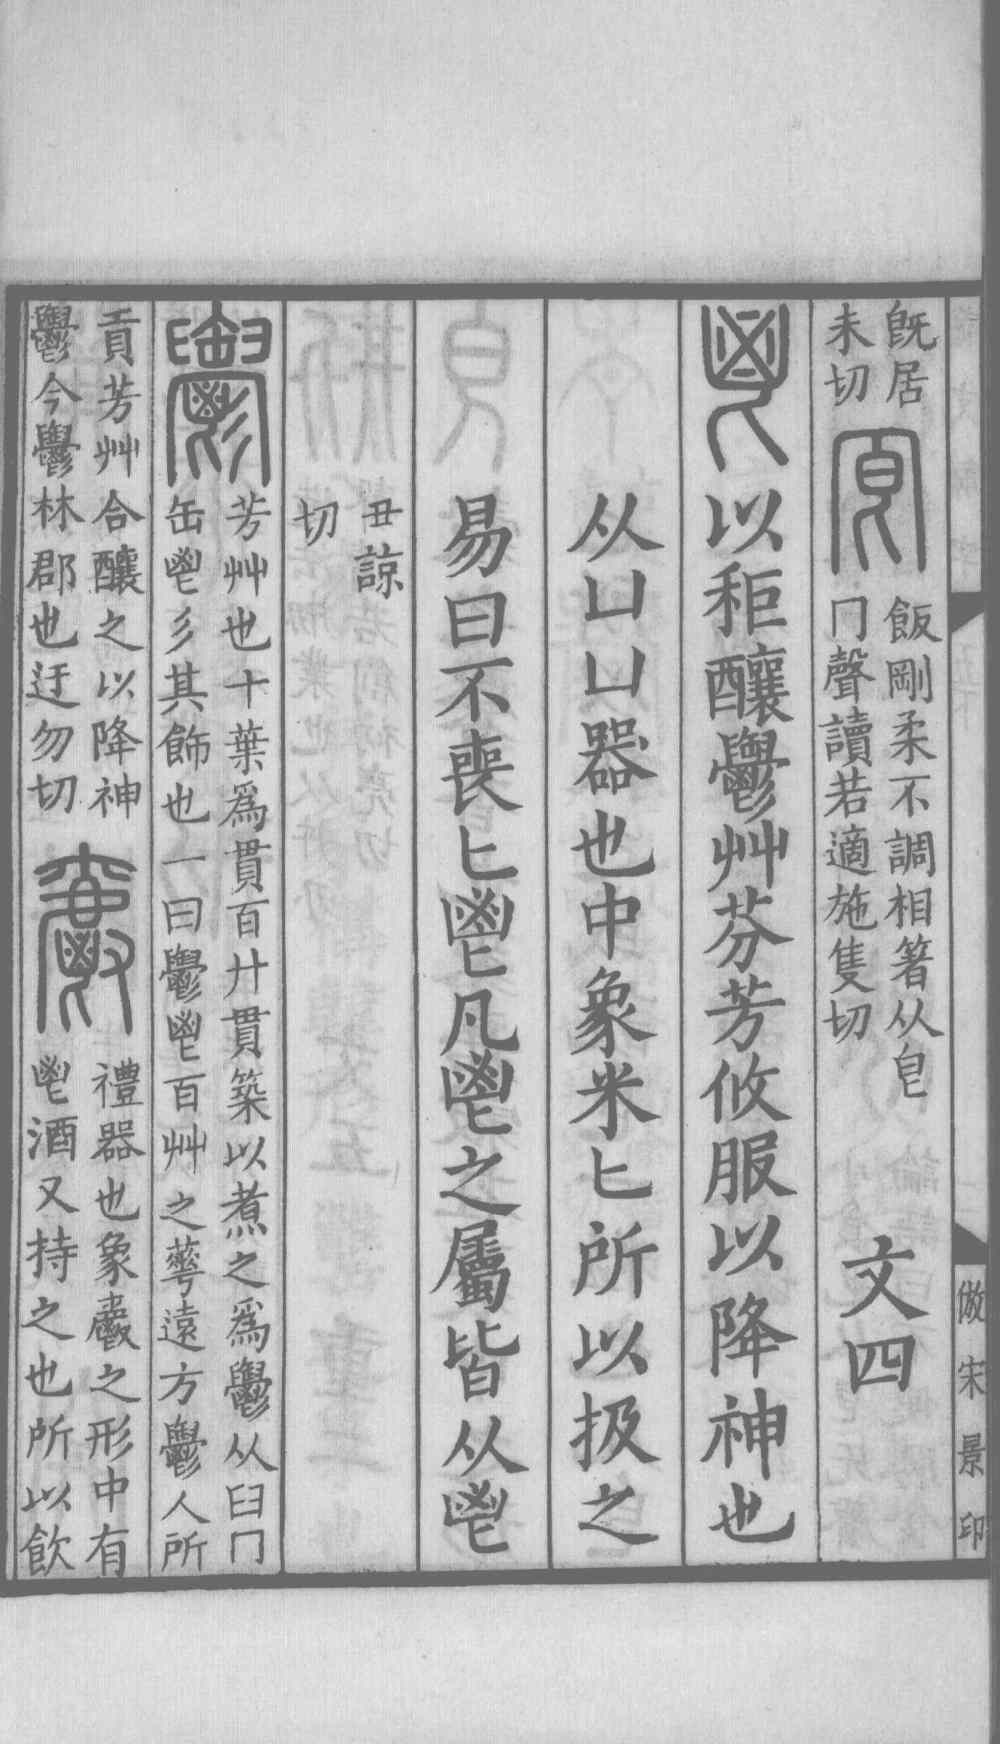 既居
未切
𠨎
飯剛柔不調相箸从皀
冂聲讀若適施隻切
文四
鬯
以秬釀鬱艸芬芳攸服以降神也
从凵凵器也中象米匕所以扱之
易曰不喪匕鬯凡鬯之屬皆从鬯
丑諒
切
鬱
芳艸也十葉爲貫百廾貫築以煮之爲鬱从臼冂
缶鬯彡其飾也一曰鬱鬯百艸之蕐遠方鬱人所
貢芳艸合釀之以降神
鬱今鬱林郡也迂勿切
爵
禮器也象爵之形中有
鬯酒又持之也所以飲
倣宋景印